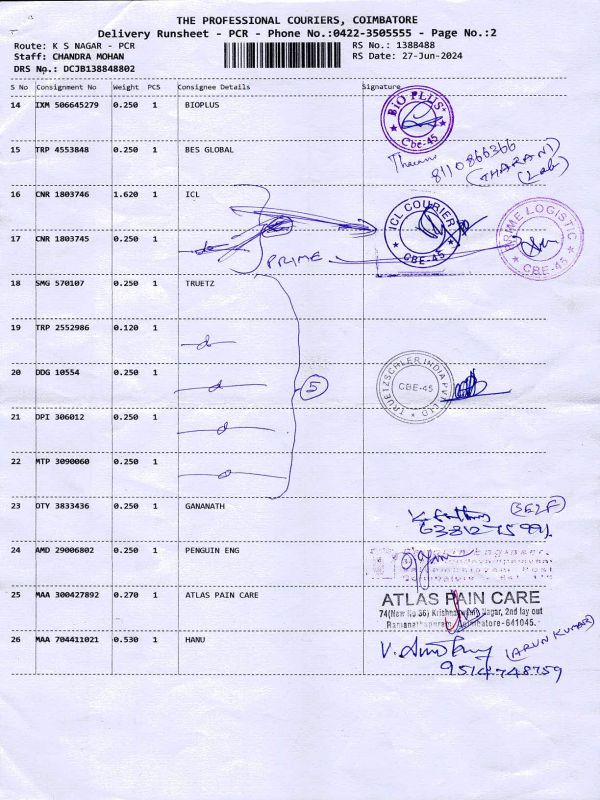 THE PROFESSIONAL COURIERS, COIMBATORE
Delivery Runsheet - PCR - Phone No.:0422-3505555 - Page No.:2
Route: K S NAGAR - PCR RS No.: 1388488
Staff: CHANDRA MOHAN RS Date: 27-Jun-2024
DRS No.: DCJB138848802
S No Consignment No Weight PCS Consignee Details Signature
14 IXM 506645279 0.250 1 BIOPLUS
BIO PLUS
Cbe-45
15 TRP 4553848 0.250 1 BES GLOBAL
8110866366
(THARANI)
(Lab)
16 CNR 1803746 1.620 1 ICL
ICL COURIER
CBE-45
PRIME LOGISTIC
CBE-45
17 CNR 1803745 0.250 1
PRIME
18 SMG 570107 0.250 1 TRUETZ
19 TRP 2552986 0.120 1 d
20 DDG 10554 0.250 1 d
5
TRUETZSCHLER INDIA PVT LTD
CBE-45
21 DPI 306012 0.250 1 d
22 MTP 3090060 0.250 1 d
23 OTY 3833436 0.250 1 GANANATH
(SELF)
24 AMD 29006802 0.250 1 PENGUIN ENG
25 MAA 300427892 0.270 1 ATLAS PAIN CARE
ATLAS PAIN CARE
74(New No 36) Nagar, 2nd lay out
Ramanathapuram, Coimbatore-641045.
26 MAA 704411021 0.530 1 HANU
(ARUN KUMAR)
9514748759